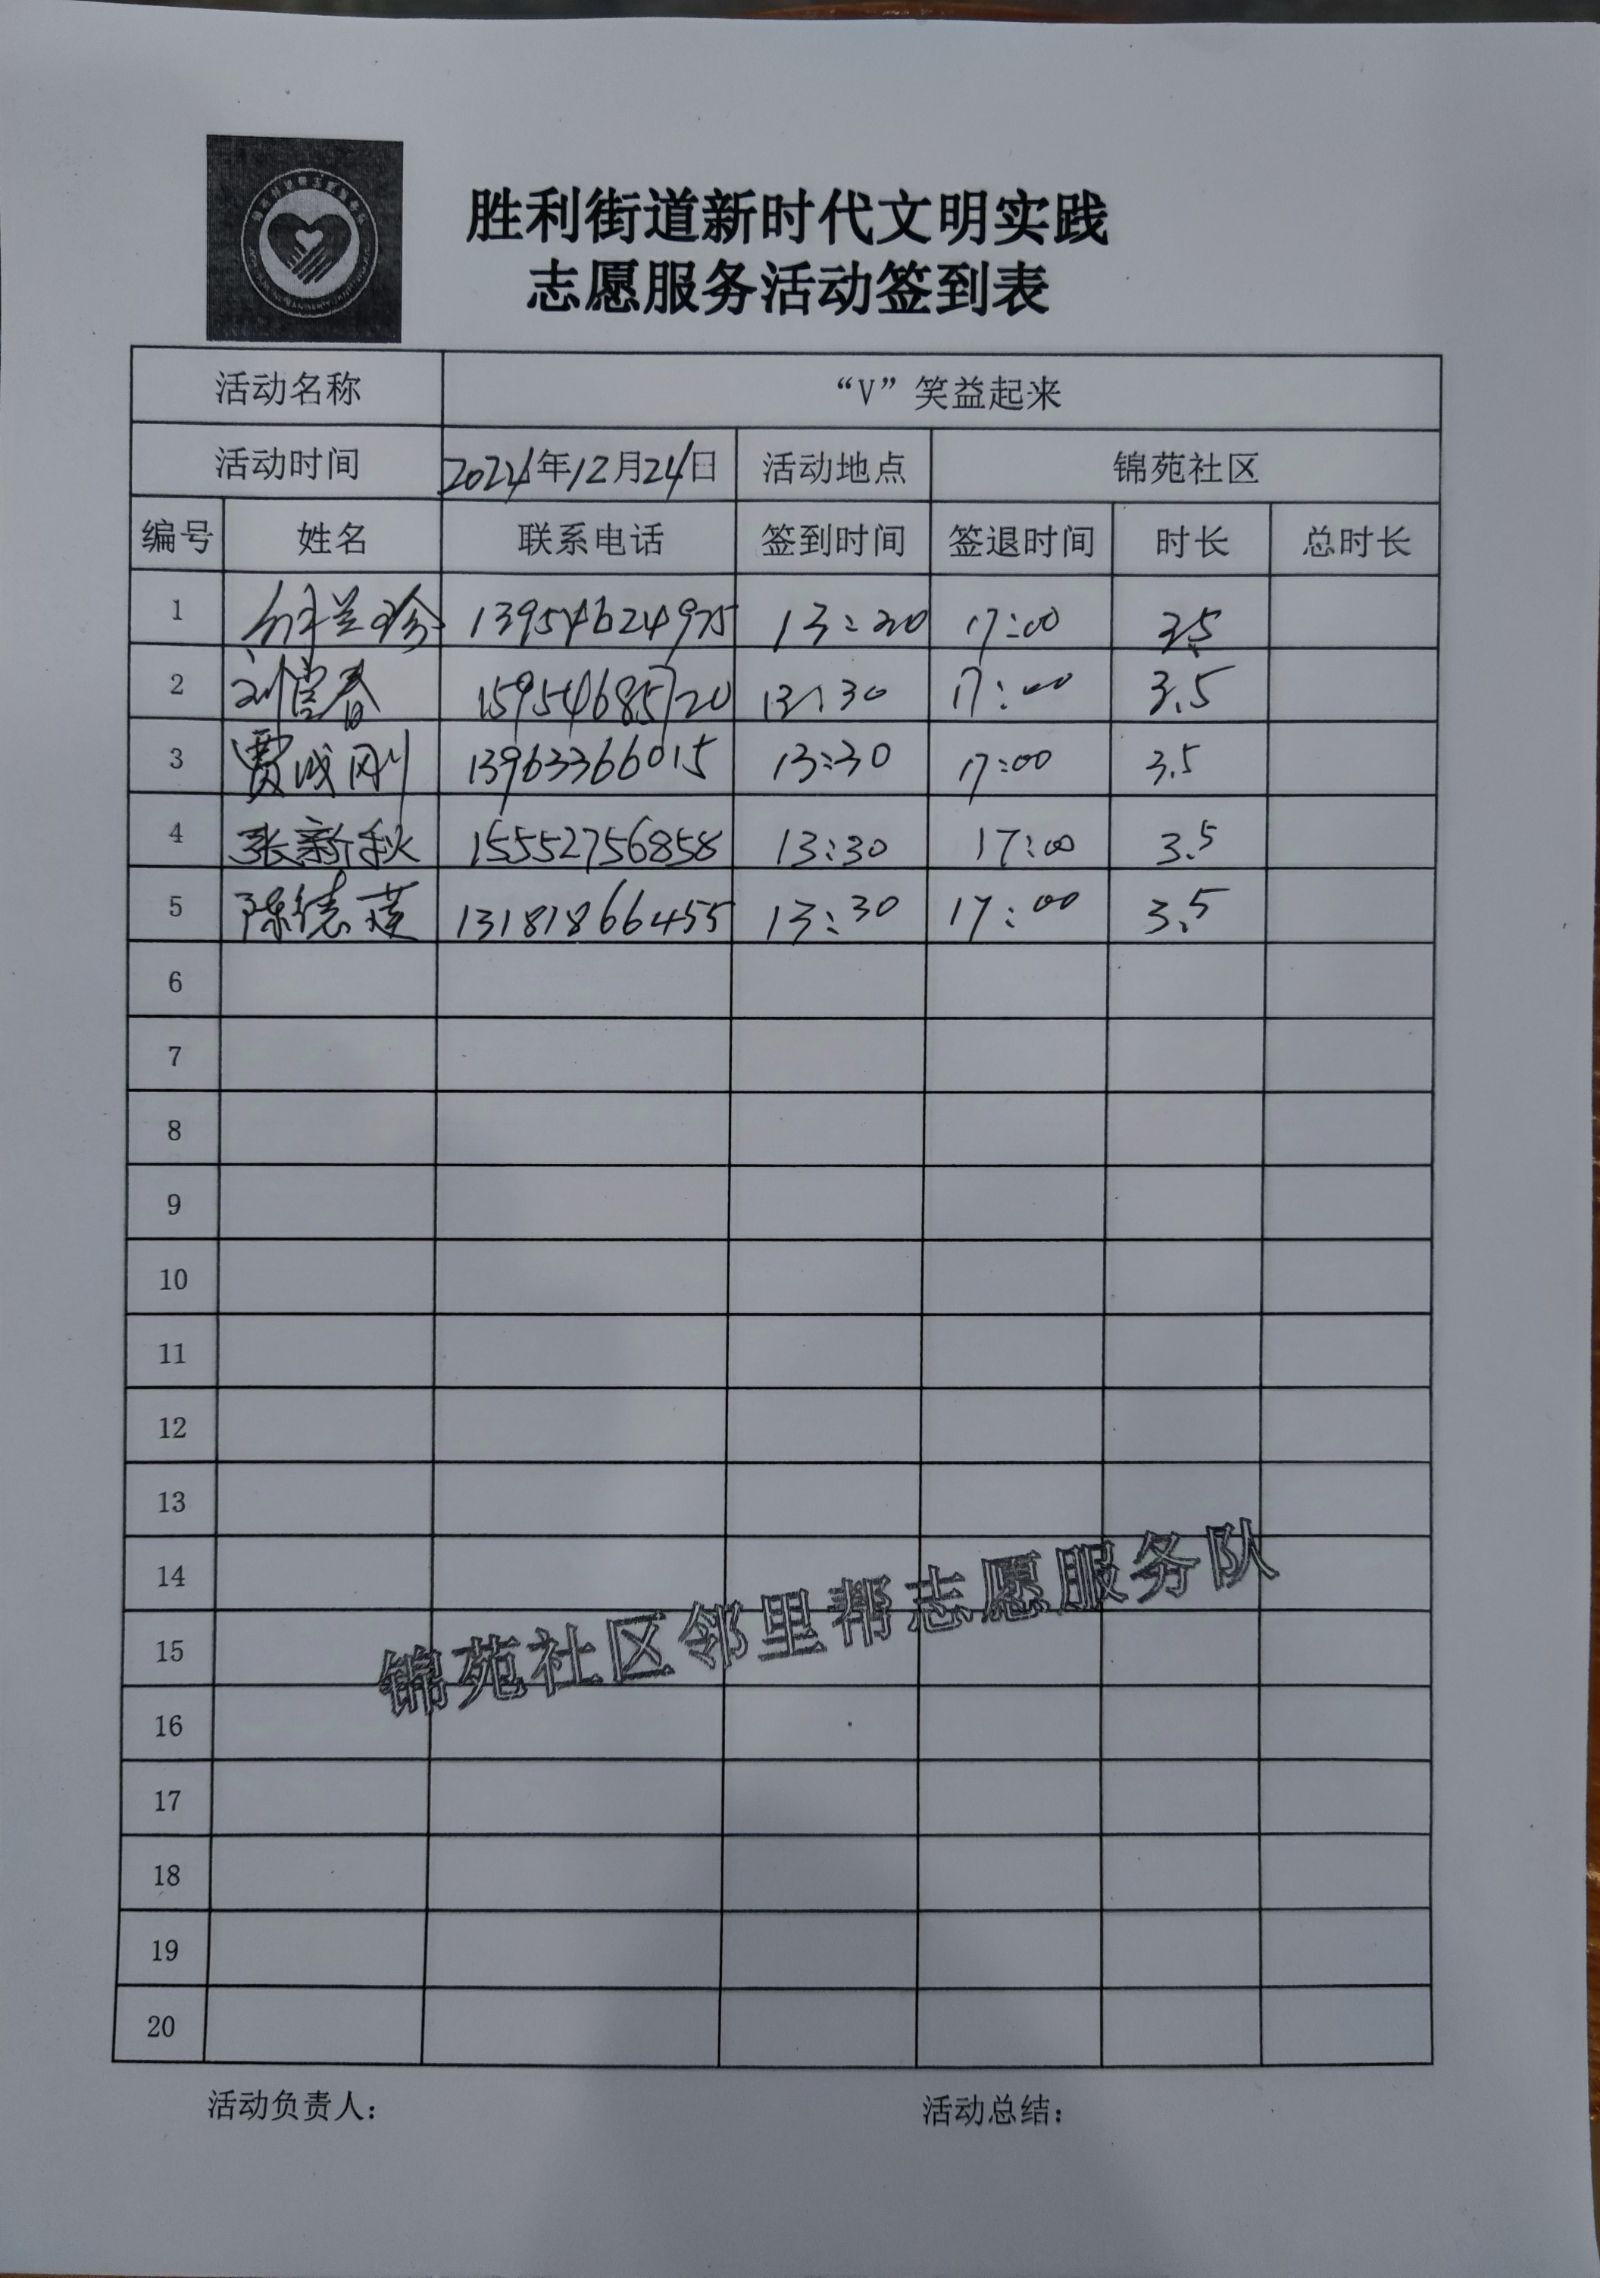 胜利街道新时代文明实践
志愿服务活动签到表
活动名称 “V”笑益起来
活动时间 2024年12月24日 活动地点 锦苑社区
编号 姓名 联系电话 签到时间 签退时间 时长 总时长
1 兰珍 13954624975 13:30 17:00 3.5
2 刘春 15954685720 13:30 17:00 3.5
3 贾成刚 13963366015 13:30 17:00 3.5
4 张新秋 15552756858 13:30 17:00 3.5
5 陈德英 13181866455 13:30 17:00 3.5
6
7
8
9
10
11
12
13
14
15
16
17
18
19
20
锦苑社区邻里帮志愿服务队
活动负责人: 活动总结: